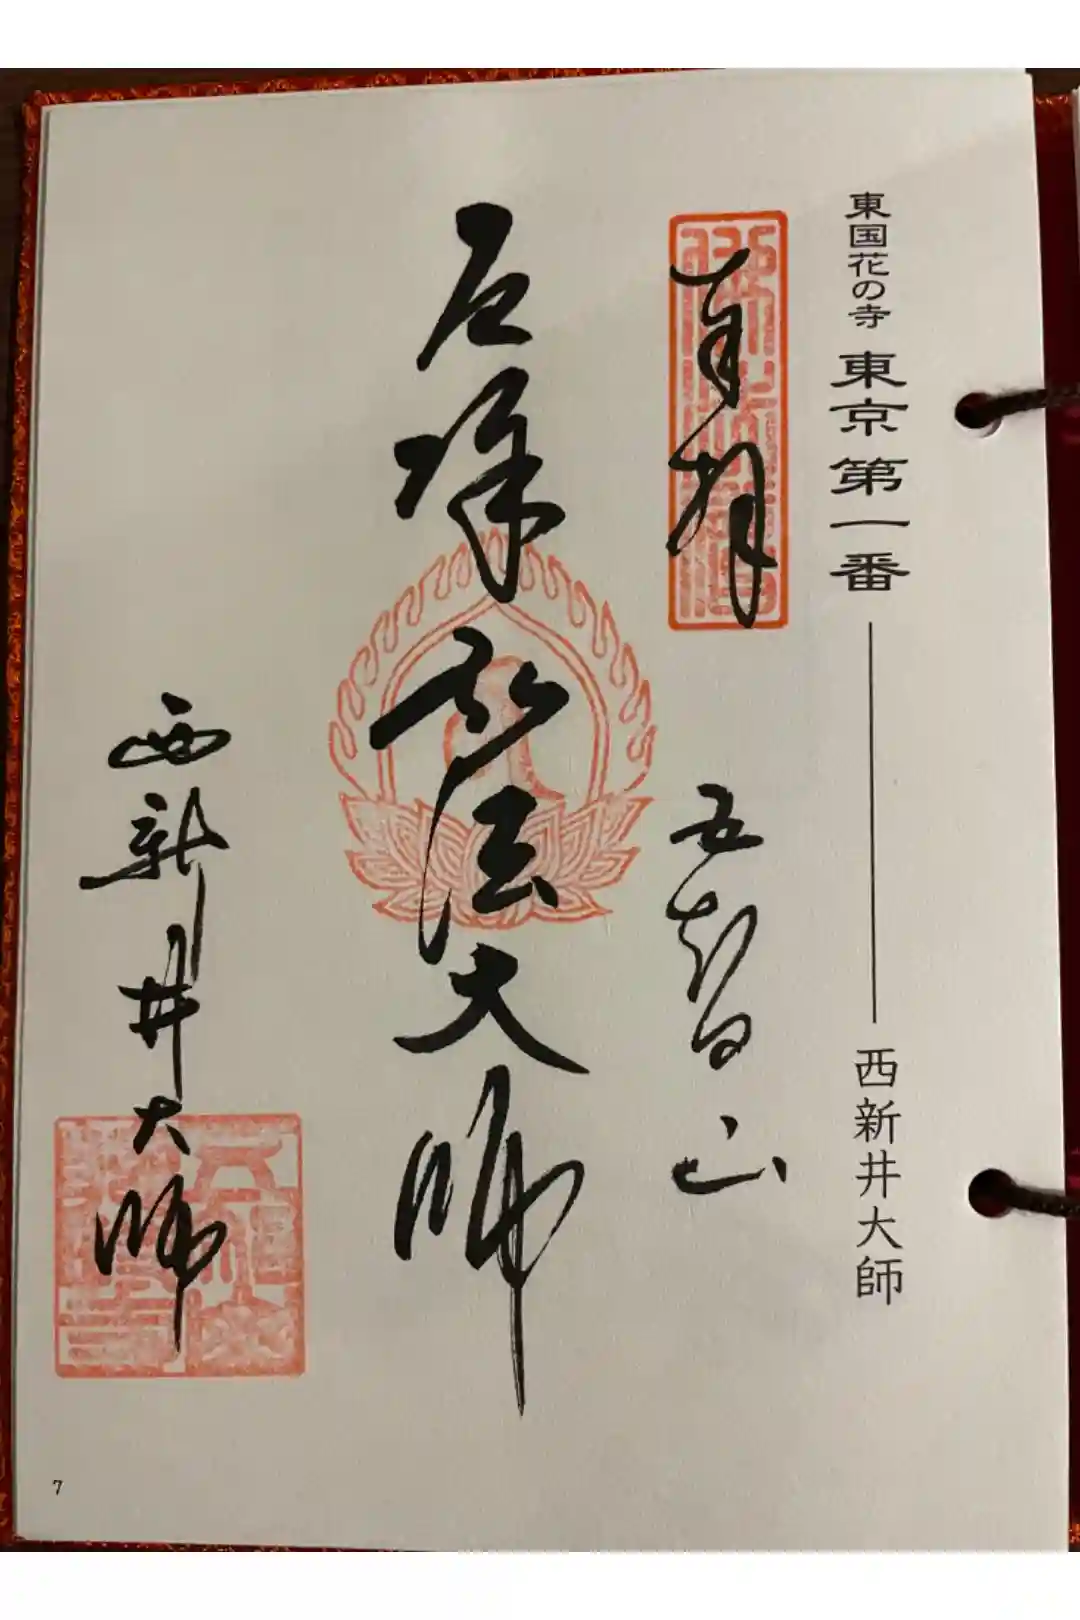 東国花の寺 東京第一番 西新井大師
奉拝 五智山
厄除弘法大師
西新井大師
7